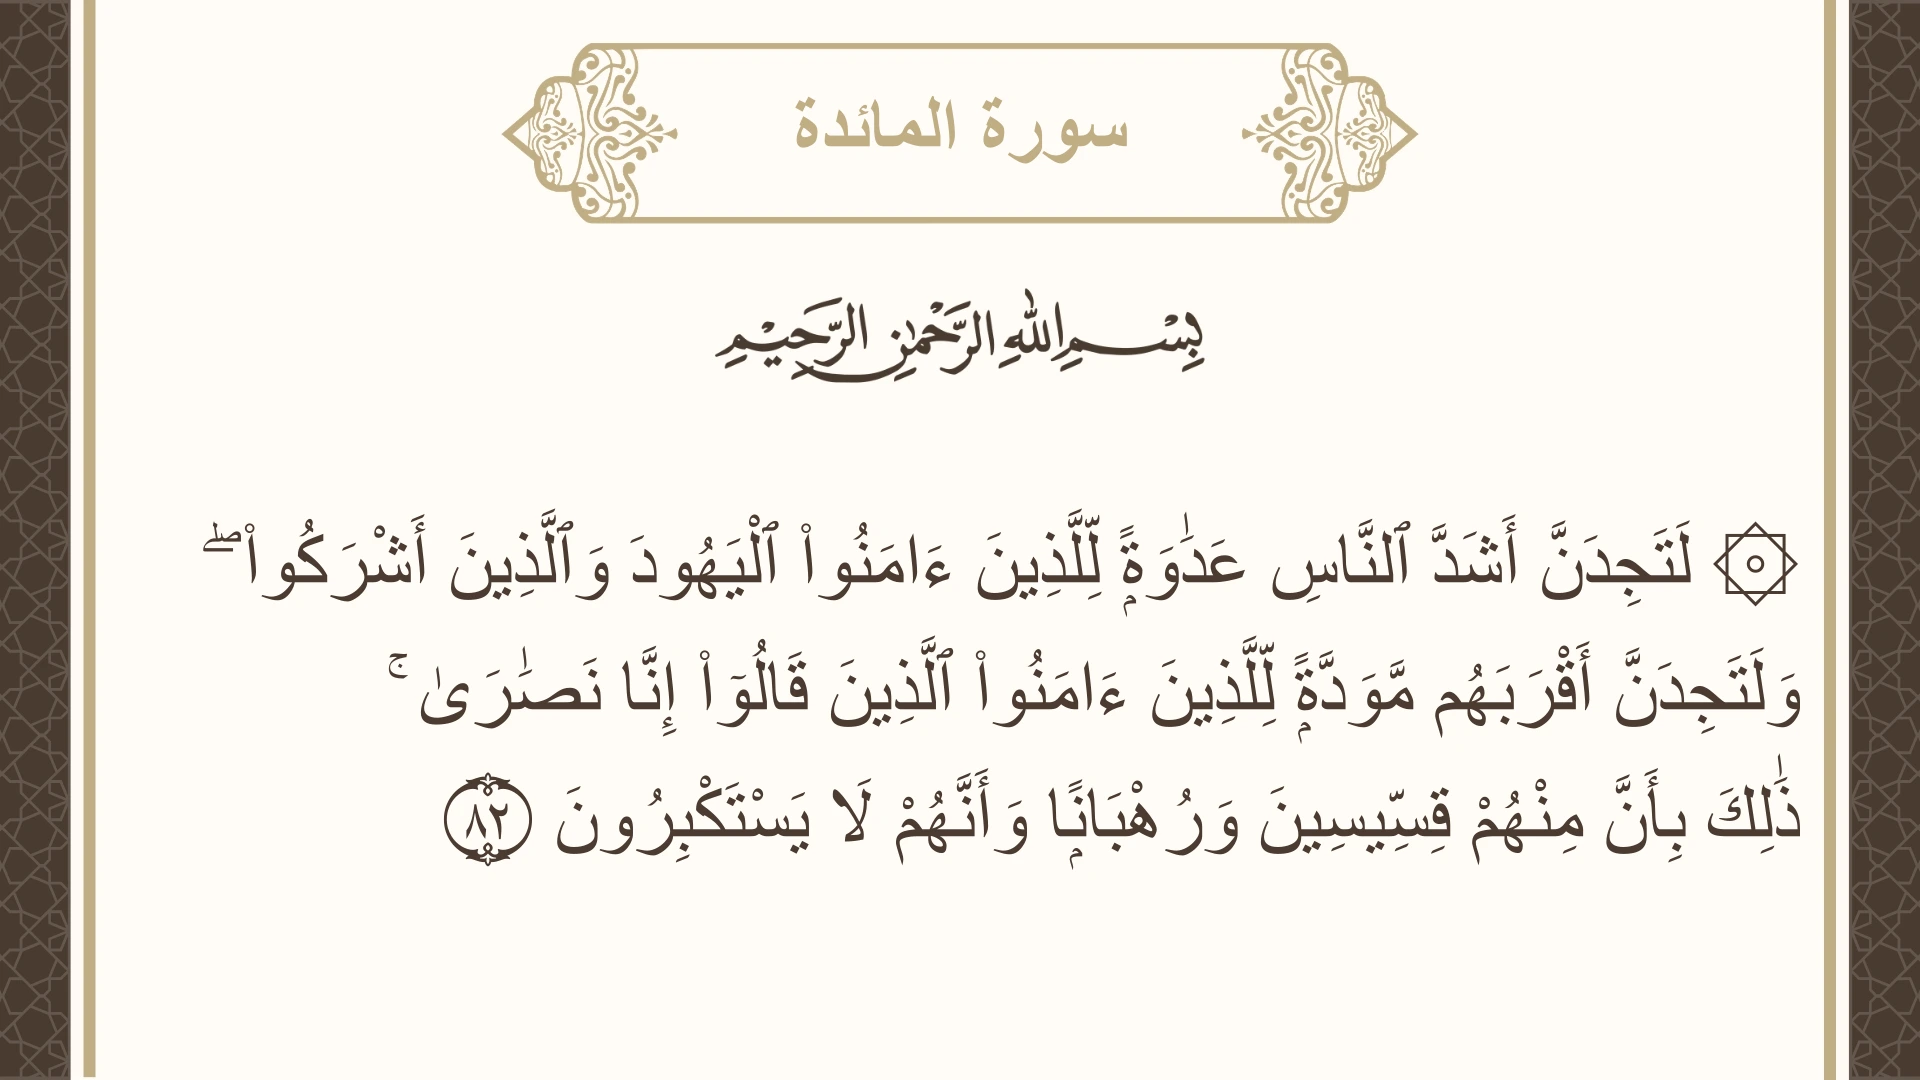 سورة المائدة
بِسْمِ اللهِ الرَّحْمٰنِ الرَّحِيْمِ
۞ لَتَجِدَنَّ أَشَدَّ ٱلنَّاسِ عَدَٰوَةًۭ لِّلَّذِينَ ءَامَنُوا۟ ٱلْيَهُودَ وَٱلَّذِينَ أَشْرَكُوا۟ ۖ
وَلَتَجِدَنَّ أَقْرَبَهُم مَّوَدَّةًۭ لِّلَّذِينَ ءَامَنُوا۟ ٱلَّذِينَ قَالُوٓا۟ إِنَّا نَصَـٰرَىٰ ۚ
ذَٰلِكَ بِأَنَّ مِنْهُمْ قِسِّيسِينَ وَرُهْبَانًۭا وَأَنَّهُمْ لَا يَسْتَكْبِرُونَ ٨٢